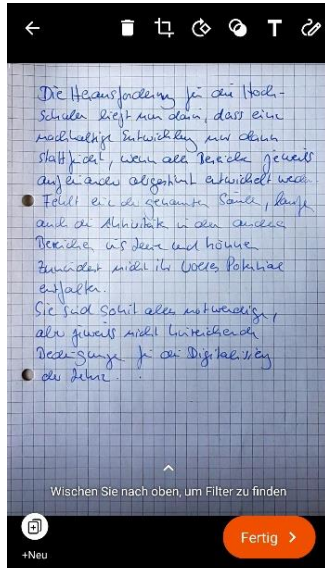 Die Herausforderung für die Hoch-
schulen liegt nun darin, dass eine
nachhaltige Entwicklung nur dann
stattfindet, wenn alle Bereiche jeweils
aufeinander abgestimmt entwickelt werden.
Fehlt eine der genannten Säulen, laufen
auch die Aktivitäten in den anderen
Bereichen ins Leere und können
zumindest nicht ihr volles Potential
entfalten.
Sie sind somit alles notwendige,
aber jeweils nicht hinreichende
Bedingungen für die Digitalisierung
der Lehre.
Wischen Sie nach oben, um Filter zu finden
+Neu
Fertig